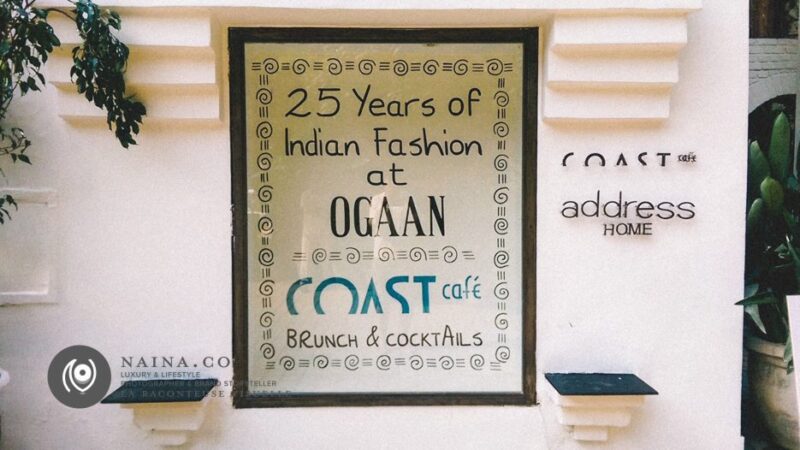 25 Years of
Indian Fashion
at
OGAAN
COAST café
BRUNCH & COCKTAILS
COAST café
address
HOME
NAINA.CO
LUXURY & LIFESTYLE
PHOTOGRAPHER & BRAND STORYTELLER
LA RACONTEUSE VISUELLE